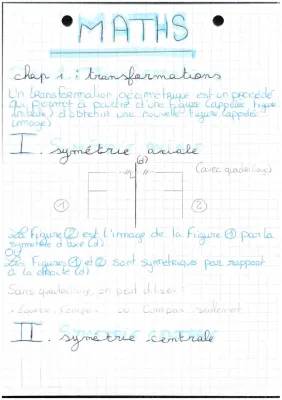 MATHS
chap 1 : transformations
Un transformation géométrique est un procédé
qui permet à partir d'une figure (appelée figure
initiale) d'obtenir une nouvelle figure (appelée
image)
I. symétrie axiale
(d)
(avec quadrillage)
① ②
La Figure ② est l'image de la Figure ① par la
symétrie d'axe (d)
OU
Les Figures ① et ② sont symétriques par rapport
à la droite (d)
Sans quadrillage, on peut utiliser :
ou Compas seulement
II. symétrie centrale